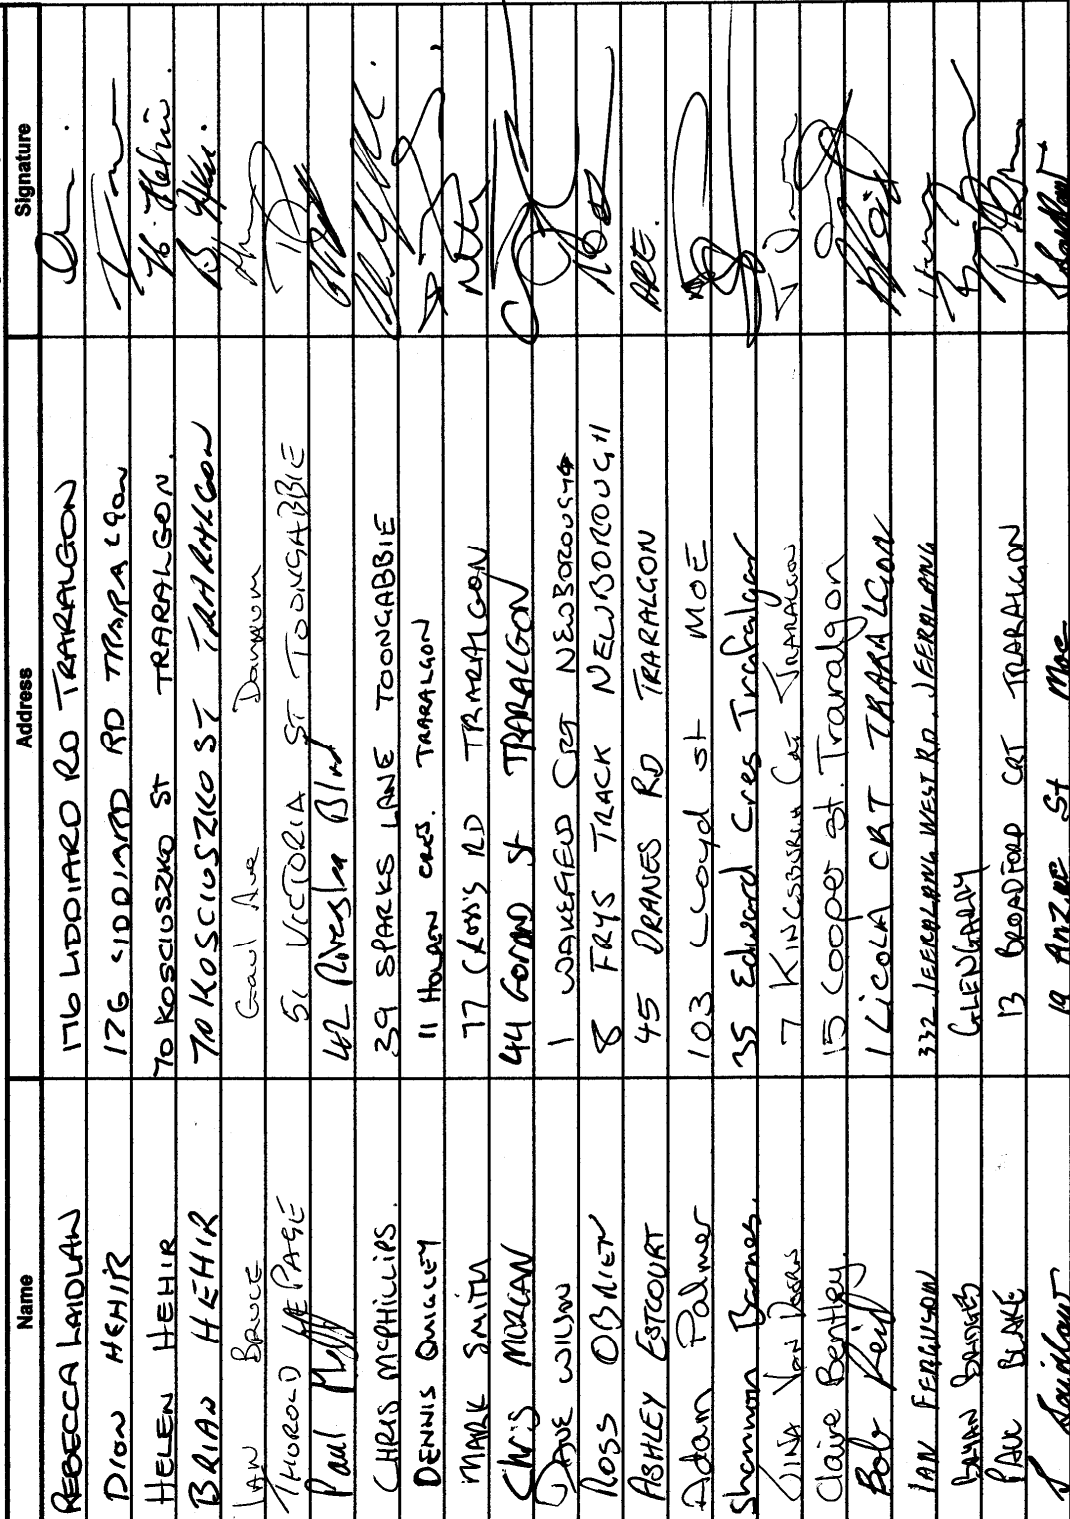 Name Address Signature
REBECCA LAIDLAW 176 LIDDIARD RD TRARALGON
DION HEHIR 176 LIDDIARD RD TRARALGON
HELEN HEHIR 70 KOSCIUSZKO ST TRARALGON. H. Hehir.
BRIAN HEHIR 70 KOSCIUSZKO ST TRARALGON B. Hehir.
IAN BRUCE Gaul Ave
THOROLD PAGE VICTORIA ST TOONGABBIE
Paul 42 Riversley Blvd
CHRIS MCPHILLIPS. 39 SPARKS LANE TOONGABBIE
DENNIS QUIGLEY 11 HOLDEN CRES. TRARALGON
MARK SMITH 77 CROSS RD TRARALGON
Chris MORGAN 44 St TRARALGON
DAVE WILSON 1 WAKEFIELD CRT NEWBOROUGH
ROSS OBRIEN 8 FRYS TRACK NEWBOROUGH
ASHLEY ESTCOURT 45 DRANES RD TRARALGON ARE.
Adam Palmer 103 Loyd st MOE
Shannon Barnes. 35 Edward Cres Trafalgar
VAN 7 KINGSBURGH CRT TRARALGON
Claire Bentley. 15 Cooper st. Traralgon
Bob Reid 1 LICOLA CRT TRARALGON
IAN FERGUSON 332 JEERALANG WEST RD. JEERALANG
BRIDGES GLENGARRY
PAUL BLAKE 13 BROADFORD CRT TRARALGON
19 St Moe